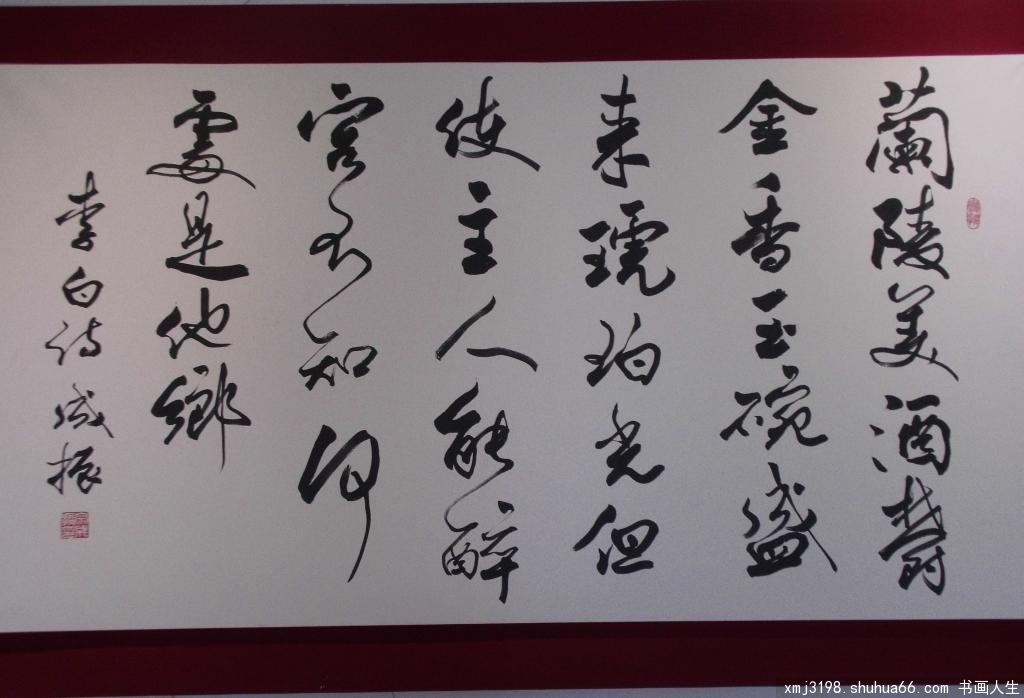 蘭陵美酒欝
金香玉碗盛
来琥珀光但
使主人能醉
客不知何
處是他鄉
李白诗 成振
xmj3198.shuhua66.com 书画人生